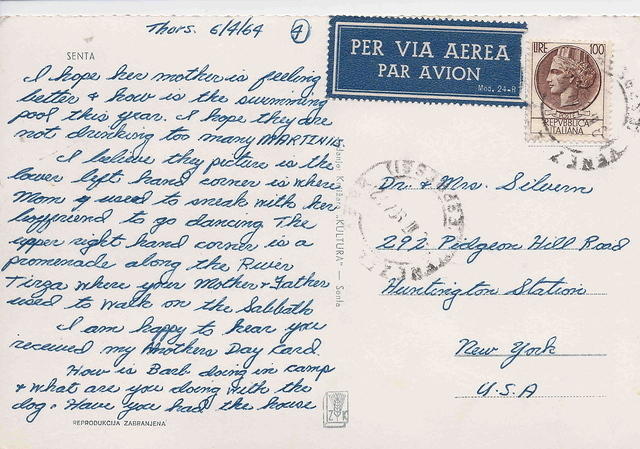 Thors. 6/4/64 4
SENTA
I hope her mother is feeling
better & how is the swimming
pool this year. I hope they are
not drinking too many MARTINIS
I believe they picture is the
lower left hand corner is where
Mom y used to sneak with her
boyfriend to go dancing The
upper right hand corner is a
promenade along the River
Tirza where your Mother & Father
used to walk on the Sabbath
I am happy to hear you
received my Mothers Day Card.
How is Barb doing in camp
& what are you doing with the
dog. Have you had the house
REPRODUKCIJA ZABRANJENA
"KULTURA" — Senta
Z K
PER VIA AEREA
PAR AVION
Mod. 24-R
LIRE 100
POSTE
REPVBBLICA
ITALIANA
VENEZ
Dr. & Mrs. Silvern
292 Pidgeon Hill Road
Huntington Station
New York
U.S.A